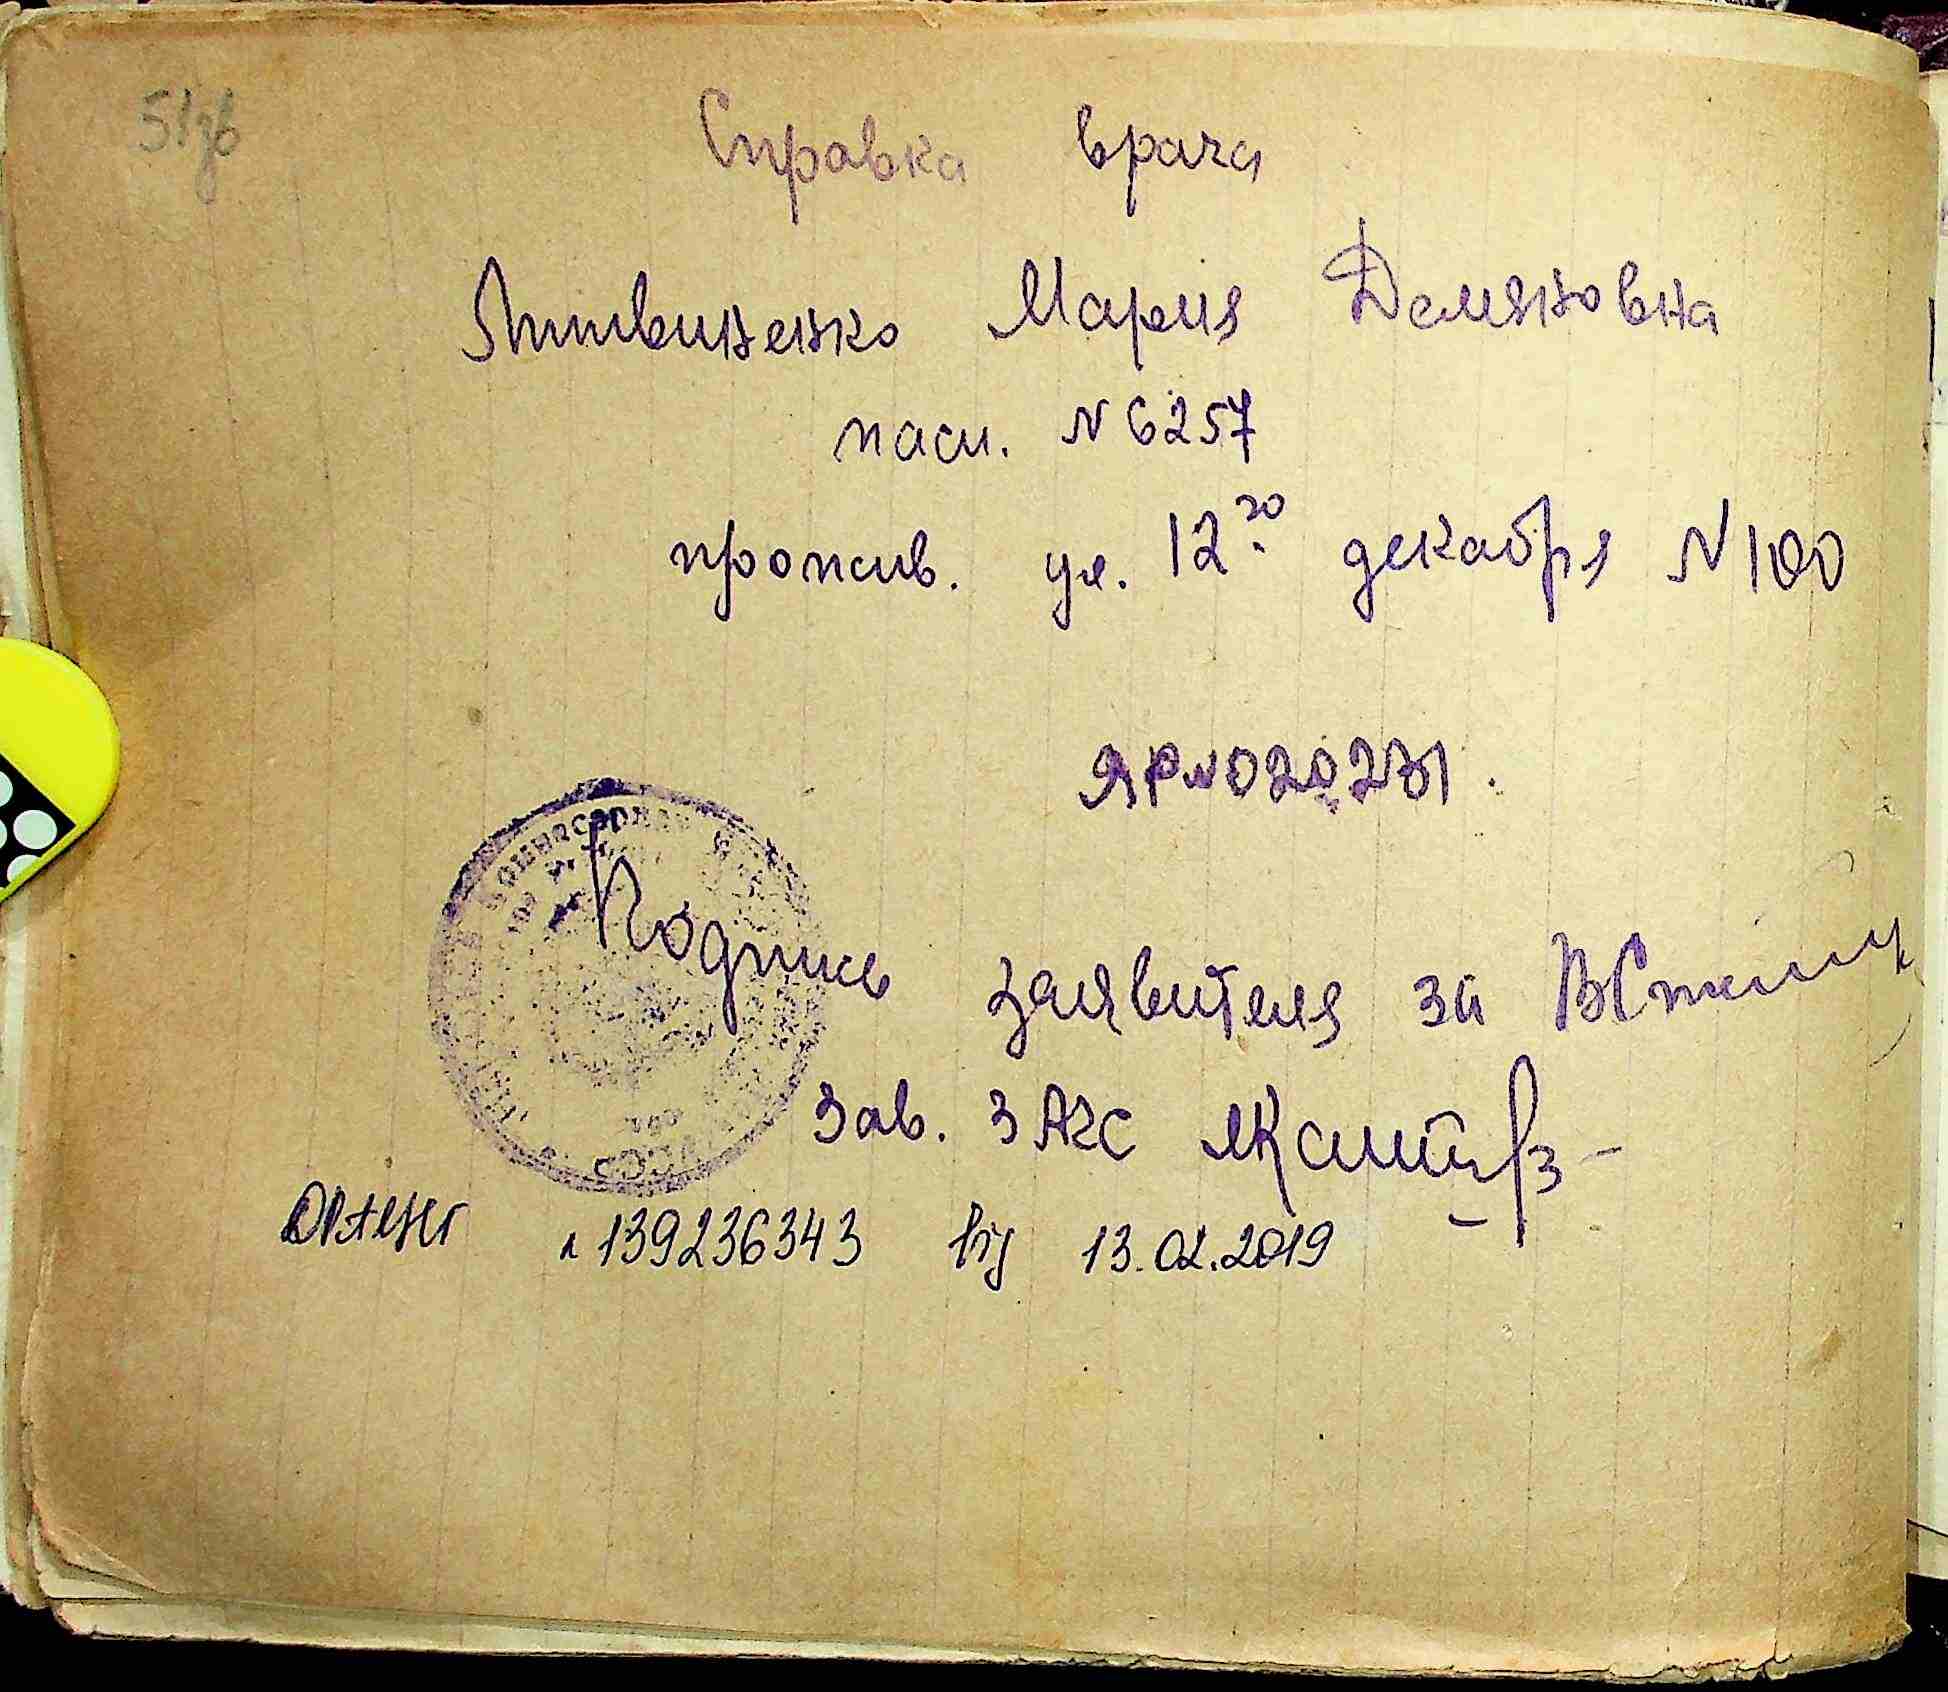 51зв
Справка врача
Литвиненко Мария Демяновна
пасп. N 6257
прожив. ул. 12го декабря N 100
ЯР N 020231.
Подпись заявителя за
Зав. ЗАГС
ДРАЦСГ
139236343 від 13.02.2019